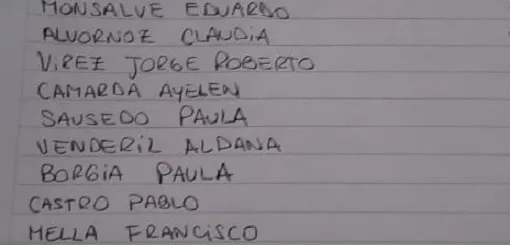 MONSALVE EDUARDO
ALVORNOZ CLAUDIA
VIREZ JORGE ROBERTO
CAMARDA AYELEN
SAUSEDO PAULA
VENDERiL ALDANA
BORGiA PAULA
CASTRO PABLO
MELLA FRANCiSCO